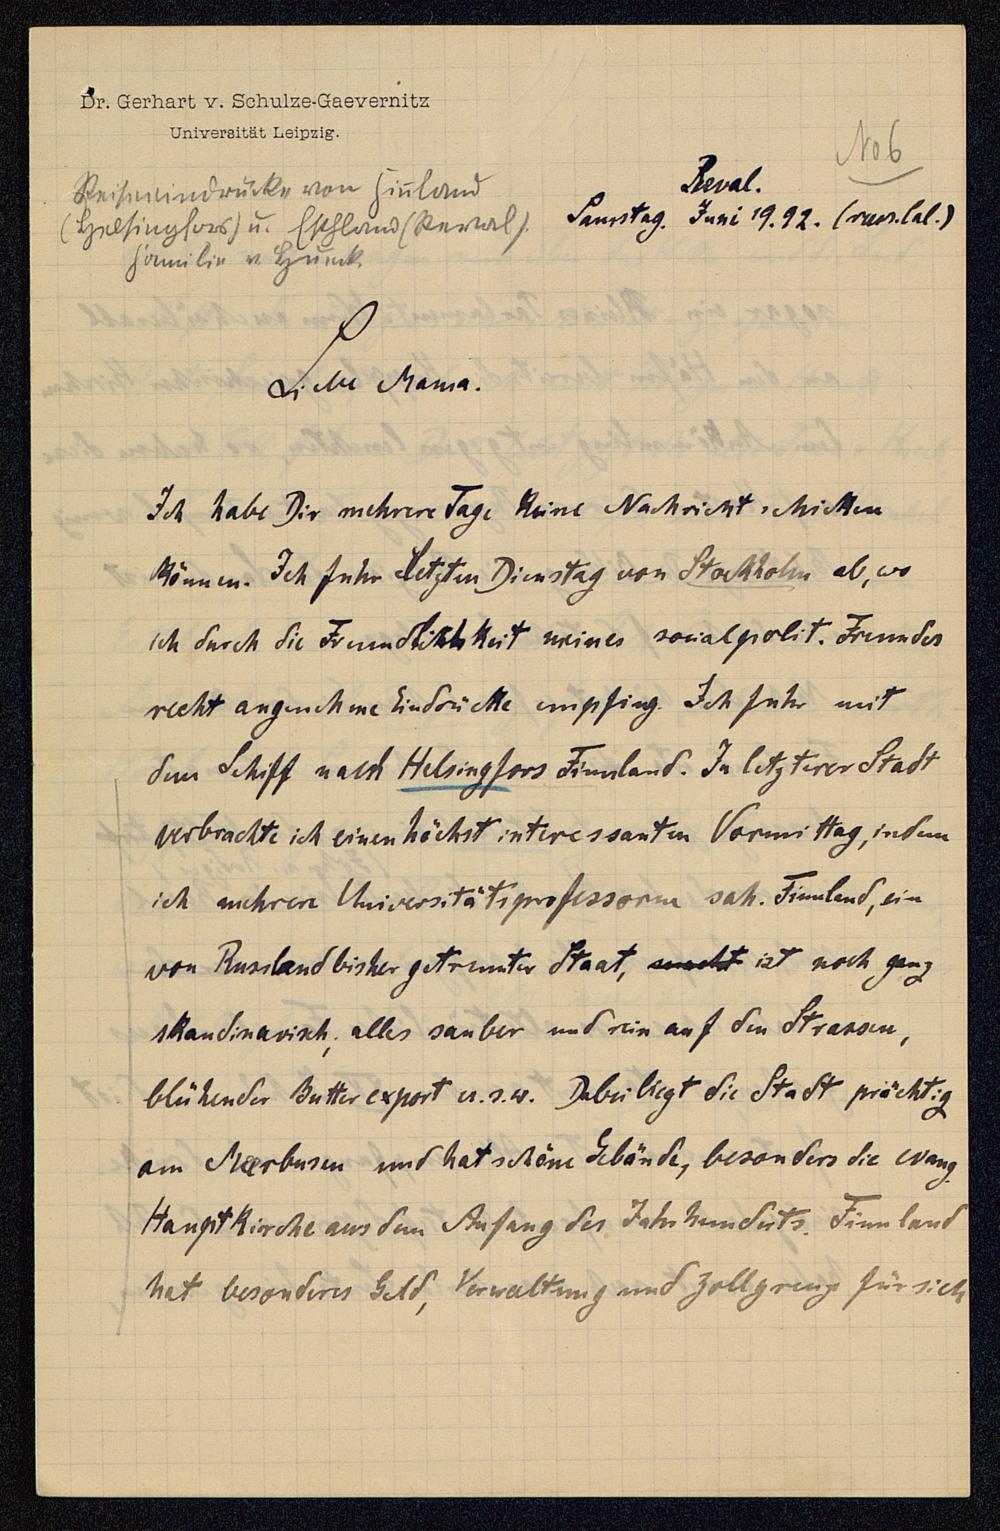 Dr. Gerhart v. Schulze-Gaevernitz
Universität Leipzig.
No 6
Reiseeindrücke von Finland
(Helsingfors) u. Esthland (Rewal).
Familie v. Hueck
Reval.
Samstag. Juni 19. 92. (russ. Cal.)
Liebe Mama.
Ich habe Dir mehrere Tage keine Nachricht schicken
können. Ich fuhr letzten Dienstag von Stockholm ab, wo
ich durch die Freundlichkeit meines socialpolit. Freundes
recht angenehme Eindrücke empfing. Ich fuhr mit
dem Schiff nach Helsingfors Finnland. In letzterer Stadt
verbrachte ich einen höchst interessanten Vormittag, indem
ich mehrere Universitätsprofessoren sah. Finnland, ein
von Russland bisher getrennter Staat, macht ist noch ganz
skandinavisch, alles sauber und rein auf den Strassen,
blühender Butterexport u.s.w. Dabei liegt die Stadt prächtig
am Meerbusen und hat schöne Gebäude, besonders die evang.
Hauptkirche aus dem Anfang des Jahrhunderts. Finnland
hat besonderes Geld, Verwaltung und Zollgrenze für sich